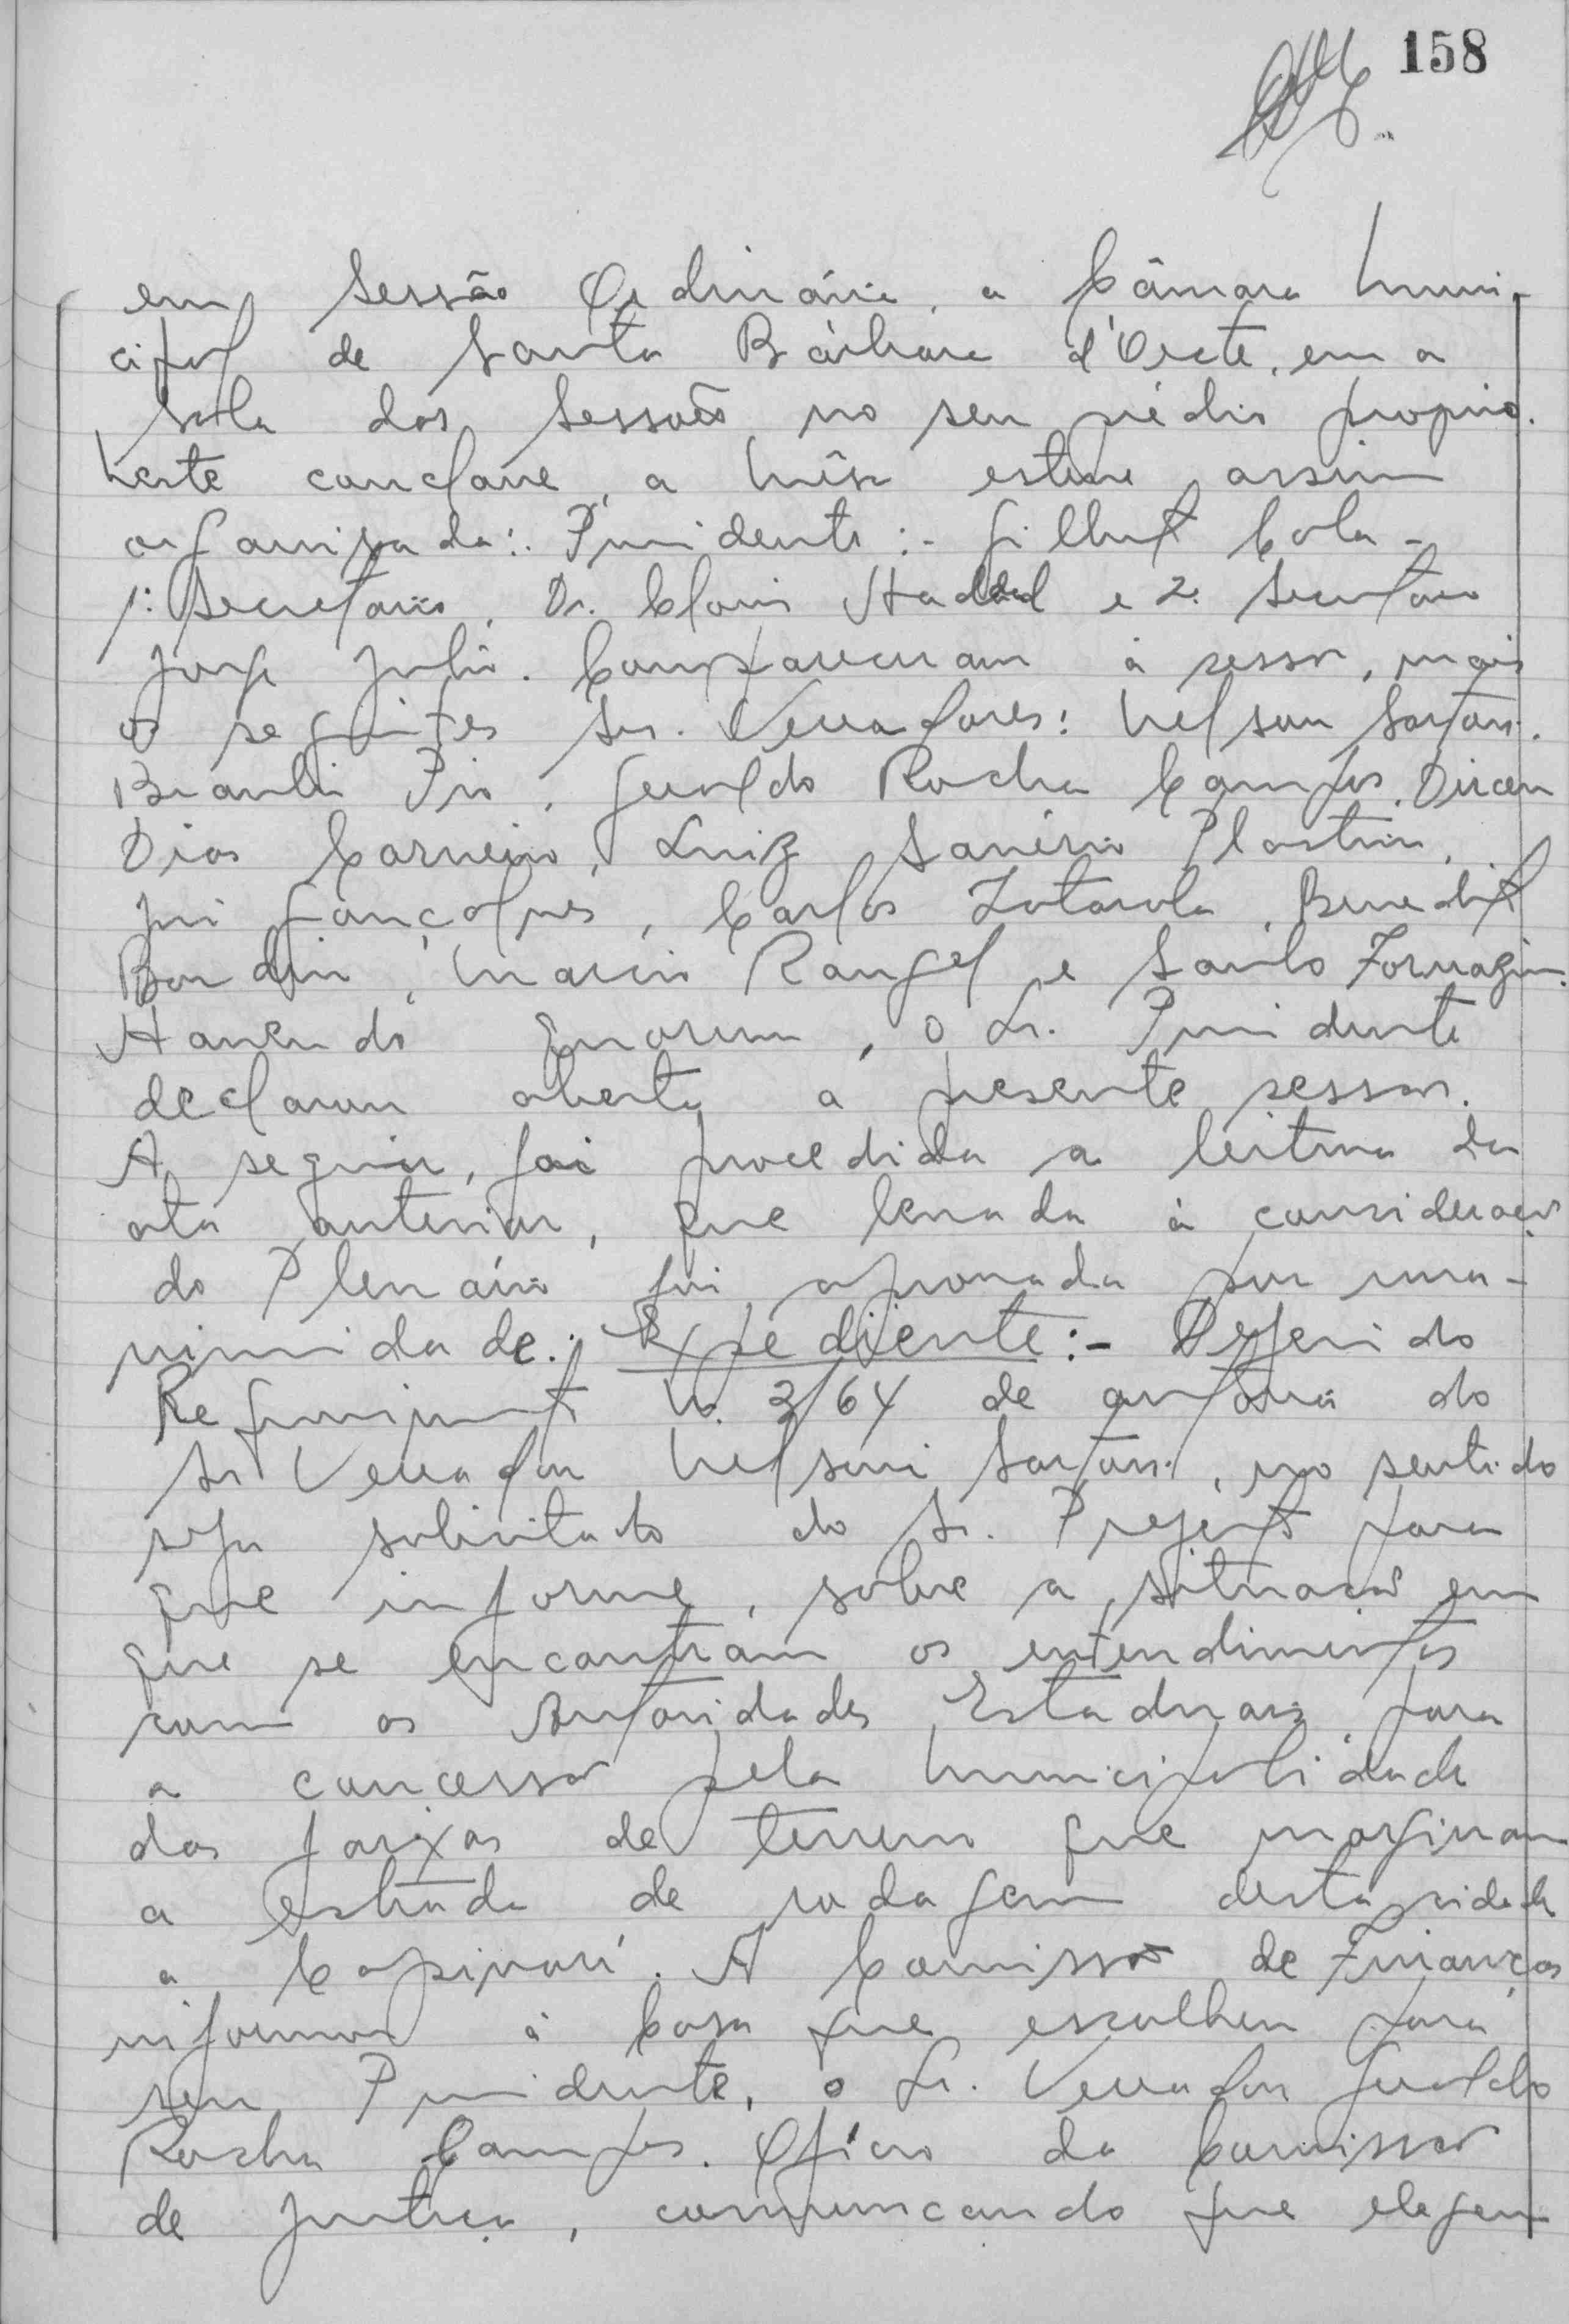 158
em Sessão Ordinária, a Câmara Muni-
cipal de Santa Bárbara d'Oeste, em a
Sala das Sessões no seu prédio proprio.
Neste conclave, a Mêsa esteve assim
organizada:. Presidente:- Gilbert Cola -
1º Secretario, Dr. Clovis Haddad e 2º Secretario
Jorge Julio. Compareceram à sessão, mais
os seguintes Srs. Vereadores: Nelson Sartori.
Braulio Pio, Geraldo Rocha Campos, Dirceu
Dias Carneiro, Luiz Saverio Plastino,
Gonçalves, Carlos Zotarola, Benedito
Bordin, Marcio Rangel e Santo Fornazin.
Havendo quorum, o Sr. Presidente
declarou aberta a presente sessão.
A seguir, foi procedida a leitura da
ata anterior, que levada à consideração
do Plenário foi aprovada por una-
nimidade. Expediente:- Deferido
Requerimento No. 3/64 de autoria do
Sr Vereador Nelson Sartori, no sentido
seja solicitado do Sr. Prefeito para
que informe, sobre a situação em
que se encontram os entendimentos
com as Autoridades Estaduais para
a concessão pela Municipalidade
das faixas de terreno que marginam
a estrada de rodagem desta cidade
a Capivari. A Comissão de Finanças
informou à Casa que escolheu para
seu Presidente, o Sr. Vereador Geraldo
Rocha Campos. Oficio da Comissão
de Justiça, comunicando que elegeu